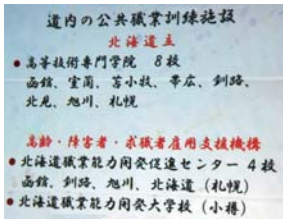 道内の公共職業訓練施設
北海道立
●高等技術専門学院 8校
函館、室蘭、苫小牧、帯広、釧路、
北見、旭川、札幌
高齢・障害者・求職者雇用支援機構
●北海道職業能力開発促進センター 4校
函館、釧路、旭川、北海道(札幌)
●北海道職業能力開発大学校(小樽)